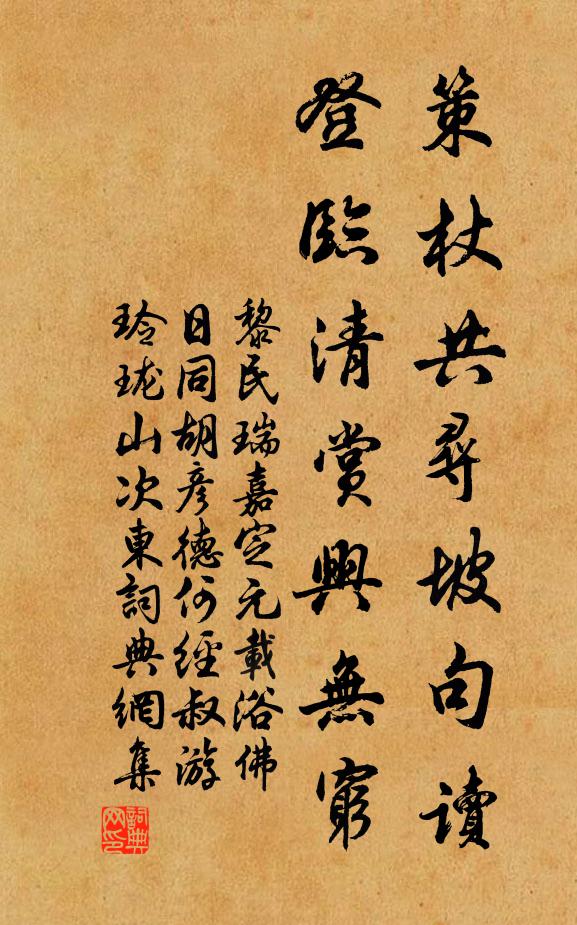 策杖共尋坡句讀
登臨清賞興無窮
黎民瑞嘉定元載浴佛
日同胡彥德何經叔游
玲瓏山次東詞典網集
詞典
网印